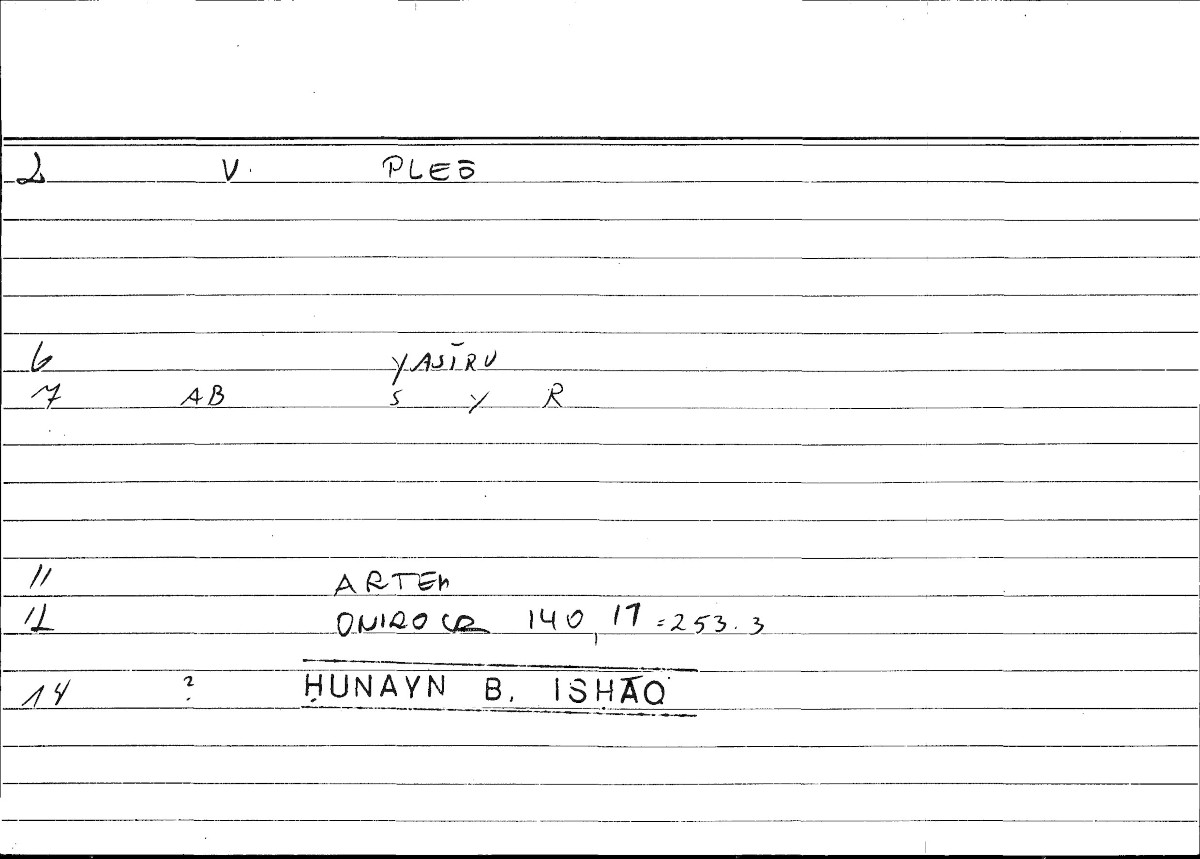 2 V. PLEŌ
6 YASĪRU
7 AB S Y R
11 ARTEM
12 ONIROCR 140,17=253.3
14 ? ḤUNAYN B. ISḤĀQ